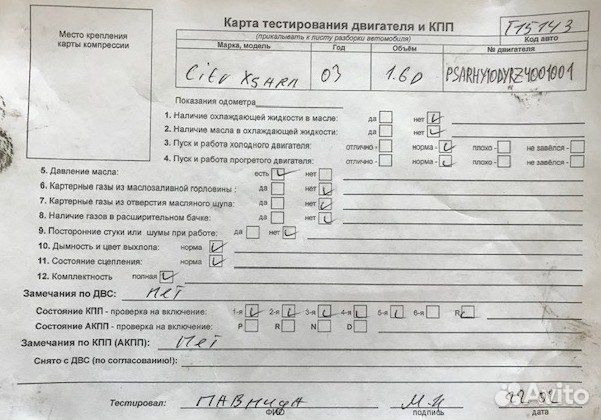 Место крепления карты компрессии
Карта тестирования двигателя и КПП
(прикалывать к листу разборки автомобиля)
T15143
Код авто
Марка, модель Год Объём № двигателя
Citr XSARA 03 1.6D PSARHY10DYRZ4001001
Показания одометра
1. Наличие охлаждающей жидкости в масле: да нет
2. Наличие масла в охлаждающей жидкости: да нет
3. Пуск и работа холодного двигателя: отлично - норма - плохо - не завёлся -
4. Пуск и работа прогретого двигателя: отлично - норма - плохо - не завёлся -
5. Давление масла: есть нет
6. Картерные газы из маслозаливной горловины: да нет
7. Картерные газы из отверстия масляного щупа: да нет
8. Наличие газов в расширительном бачке: да нет
9. Посторонние стуки или шумы при работе: да нет
10. Дымность и цвет выхлопа: норма
11. Состояние сцепления: норма
12. Комплектность полная
Замечания по ДВС: Нет
Состояние КПП - проверка на включение: 1-я 2-я 3-я 4-я 5-я 6-я R
Состояние АКПП - проверка на включение: P R N D
Замечания по КПП (АКПП): Нет
Снято с ДВС (по согласованию!):
Тестировал:
ФИО подпись
Avito